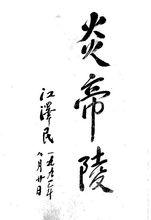 炎帝陵
江泽民
一九九三年
九月廿日